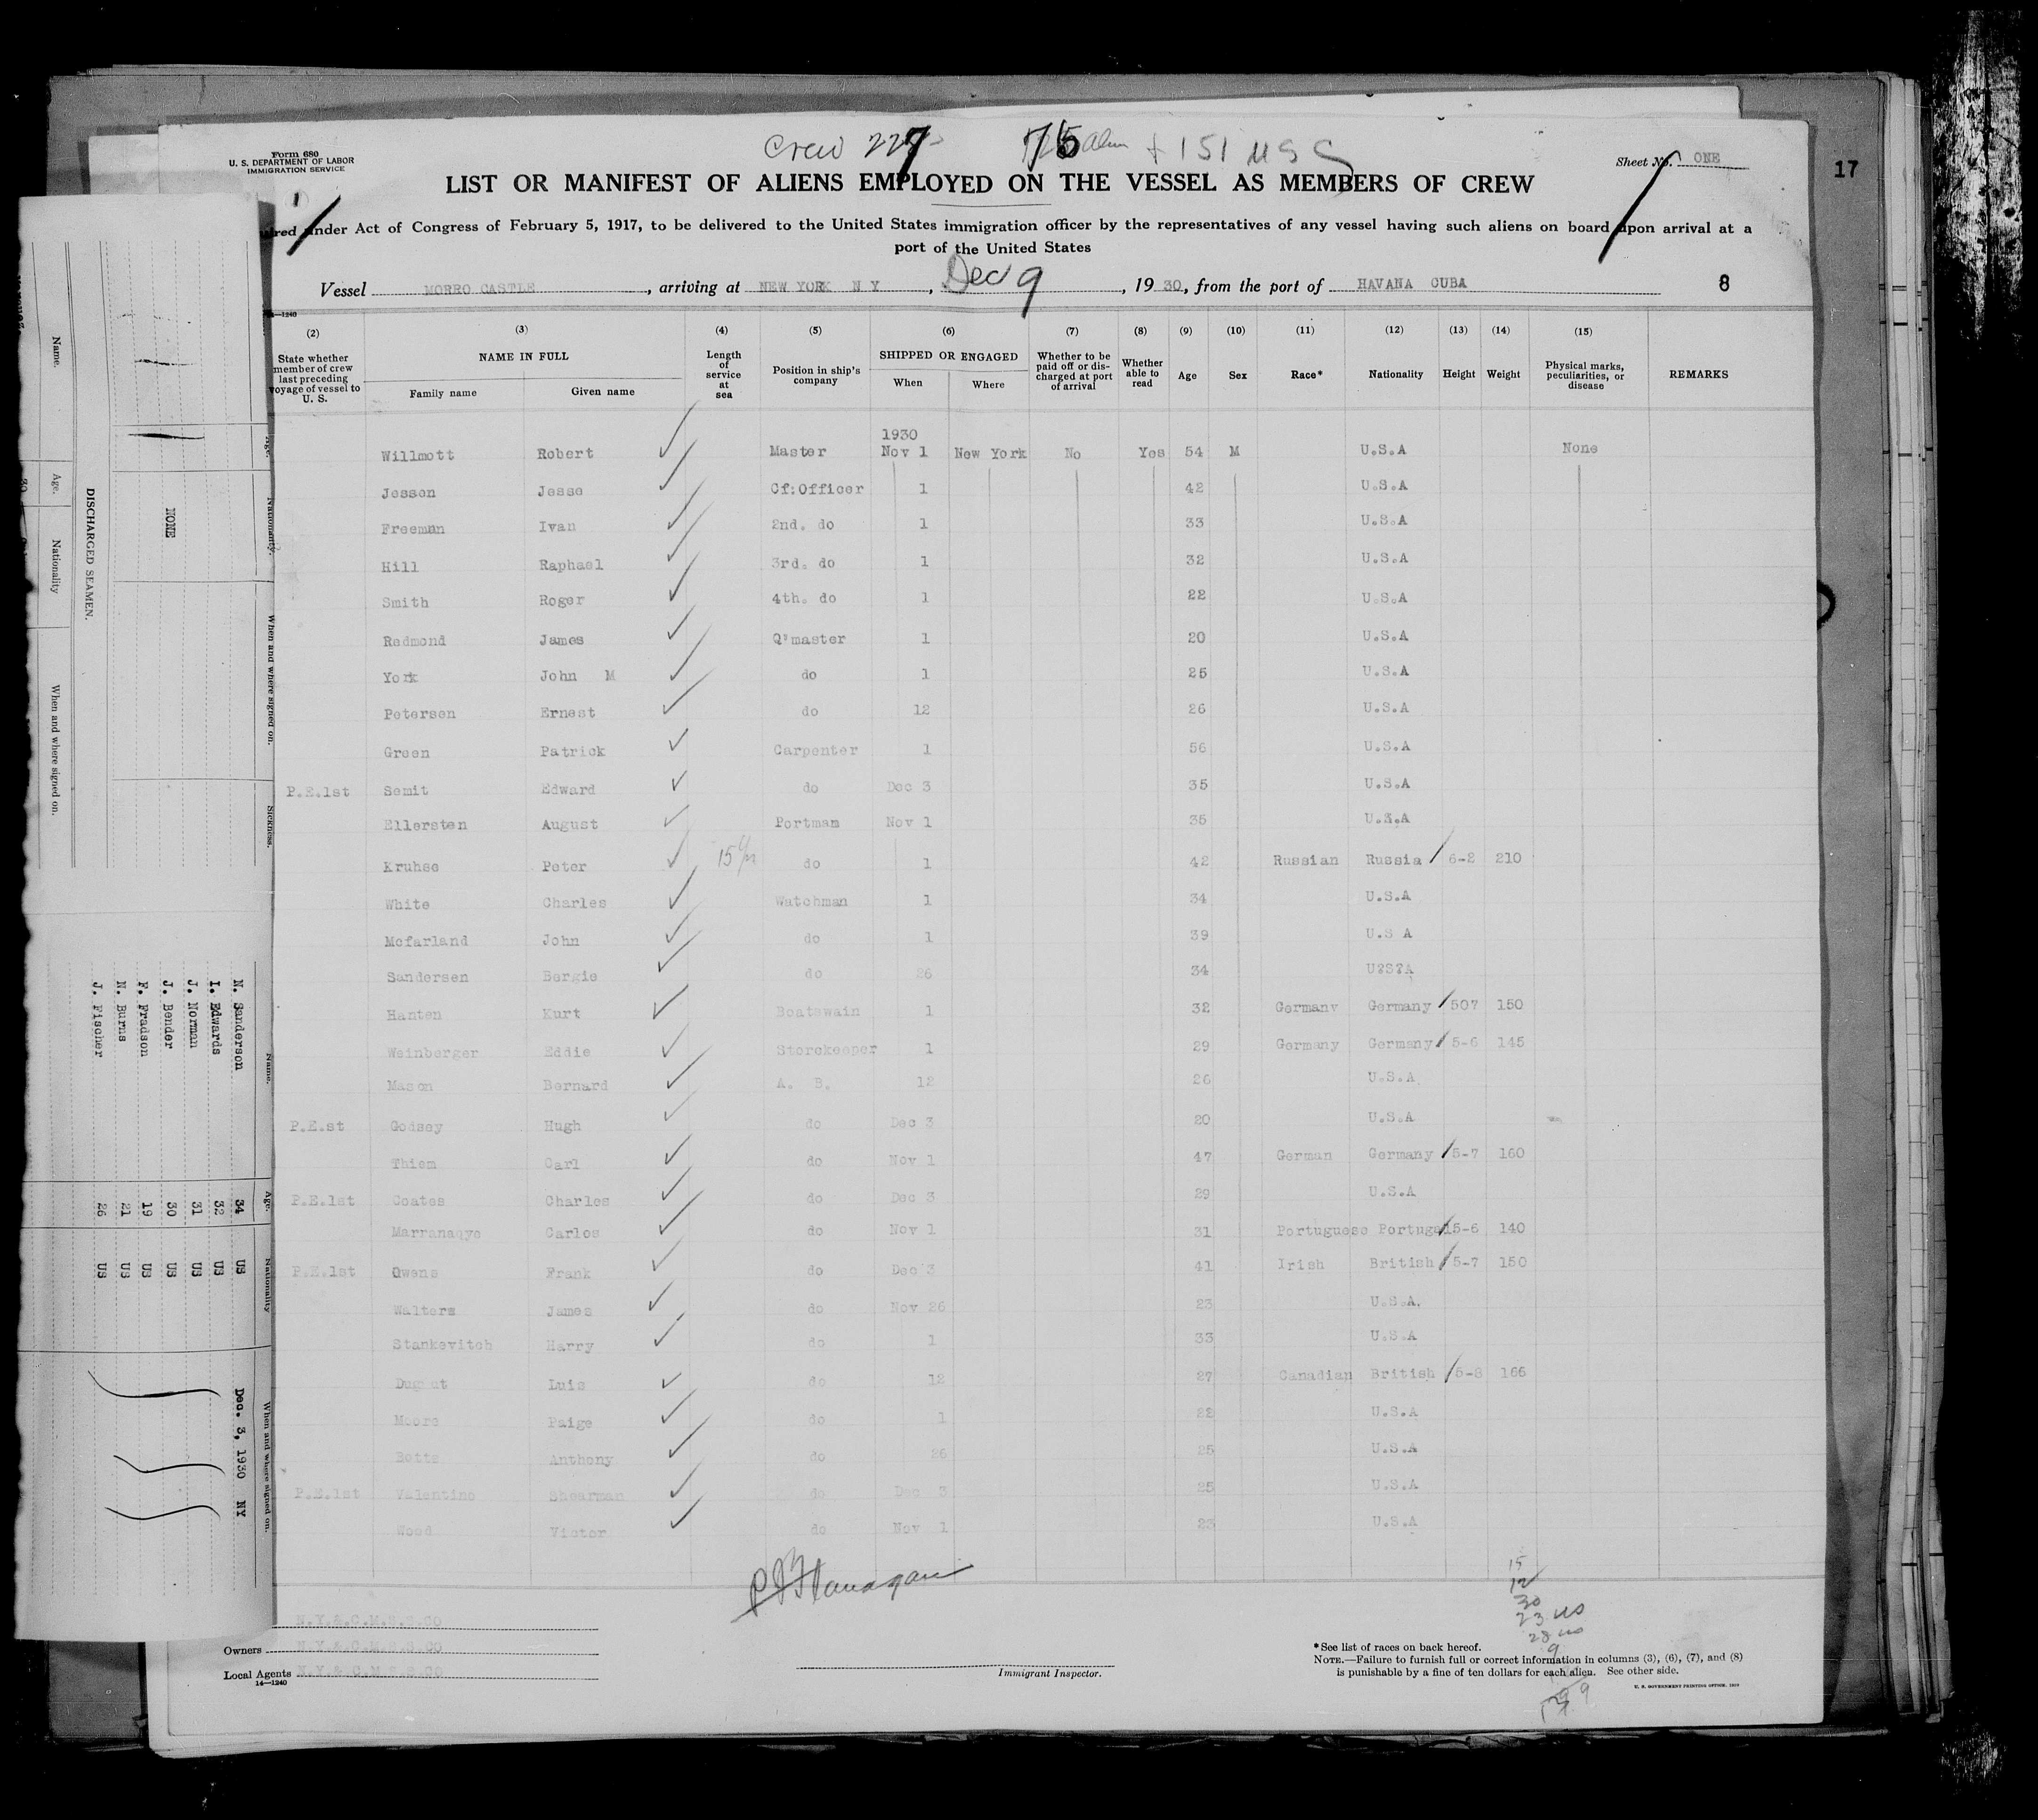 Form 680
U. S. DEPARTMENT OF LABOR
IMMIGRATION SERVICE
Crew 227 75 + 151 USC
Sheet No. ONE
17
LIST OR MANIFEST OF ALIENS EMPLOYED ON THE VESSEL AS MEMBERS OF CREW
under Act of Congress of February 5, 1917, to be delivered to the United States immigration officer by the representatives of any vessel having such aliens on board upon arrival at a
port of the United States
Vessel MORRO CASTLE, arriving at NEW YORK N Y, Dec 9, 1930, from the port of HAVANA CUBA 8
(2) (3) (4) (5) (6) (7) (8) (9) (10) (11) (12) (13) (14) (15)
State whether member of crew last preceding voyage of vessel to U. S.
NAME IN FULL
Family name Given name
Length of service at sea
Position in ship's company
SHIPPED OR ENGAGED
When Where
Whether to be paid off or discharged at port of arrival
Whether able to read
Age Sex Race* Nationality Height Weight
Physical marks, peculiarities, or disease
REMARKS
1930
Willmott Robert Master Nov 1 New York No Yes 54 M U.S.A None
Jessen Jesse Cf:Officer 1 42 U.S.A
Freeman Ivan 2nd. do 1 33 U.S.A
Hill Raphael 3rd. do 1 32 U.S.A
Smith Roger 4th. do 1 22 U.S.A
Redmond James Q'master 1 20 U.S.A
York John M do 1 25 U.S.A
Petersen Ernest do 12 26 U.S.A
Green Patrick Carpenter 1 56 U.S.A
P.E.1st Semit Edward do Dec 3 35 U.S.A
Ellersten August Portman Nov 1 35 U.S.A
Kruhse Peter 15 do 1 42 Russian Russia 6-2 210
White Charles Watchman 1 34 U.S.A
Mcfarland John do 1 39 U.S A
Sandersen Bergie do 26 34 U?S?A
Hanten Kurt Boatswain 1 32 Germany Germany 507 150
Weinberger Eddie Storekeeper 1 29 Germany Germany 5-6 145
Mason Bernard A. B. 12 26 U.S.A
P.E.st Godsey Hugh do Dec 3 20 U.S.A
Thiem Carl do Nov 1 47 German Germany 5-7 160
P.E.1st Coates Charles do Dec 3 29 U.S.A
Marranaqye Carlos do Nov 1 31 Portuguese Portugal 5-6 140
P.E.1st Owens Frank do Dec 3 41 Irish British 5-7 150
Walters James do Nov 26 23 U.S.A.
Stankevitch Harry do 1 33 U.S.A
Luis do 12 27 Canadian British 5-8 166
Moore Paige do 1 22 U.S.A
Botts Anthony do 26 25 U.S.A
P.E.1st Valentino Shearman do Dec 3 25 U.S.A
Wood Victor do Nov 1 23 U.S.A
P J Flanagan
15
12
30
23 us
28 us
9
N.Y.&.C.M.S.S.CO
Owners N.Y.&.C.M.S.S.CO
Local Agents N.Y.&.C.M.S.S.CO
14—1240
Immigrant Inspector.
*See list of races on back hereof.
NOTE.—Failure to furnish full or correct information in columns (3), (6), (7), and (8)
is punishable by a fine of ten dollars for each alien. See other side.
U. S. GOVERNMENT PRINTING OFFICE
Name. Age. Nationality When and where signed on.
DISCHARGED SEAMEN.
NONE
Nationality. When and where signed on. Sickness.
Name. Age. Nationality When and where signed on.
N. Sanderson 34 US Dec. 3, 1930 NY
I. Edwards 32 US
J. Norman 31 US
J. Bender 30 US
F. Fradson 19 US
N. Burns 21 US
J. Fischer 26 US